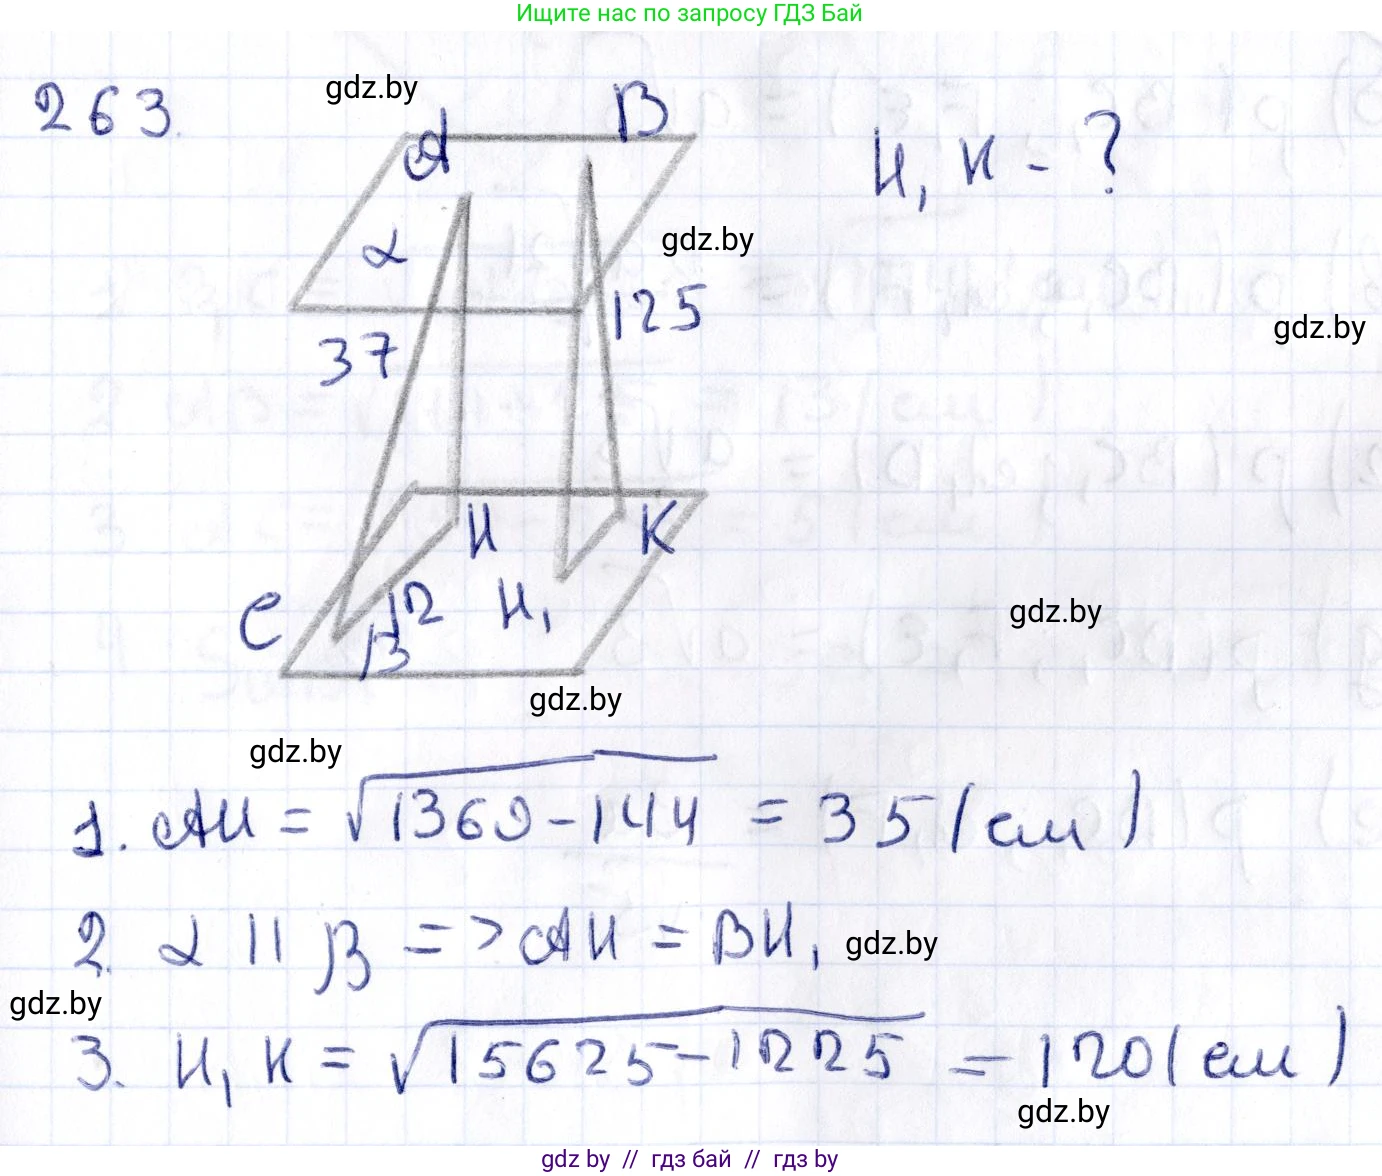 Ищите нас по запросу ГДЗ Бай
263.
gdz.by
A
B
H₁K - ?
α
gdz.by
125
gdz.by
37
H
K
C
12
H₁
gdz.by
β
gdz.by
gdz.by
1. AH = √1369-144 = 35 (см)
2. α || β => AH = BH₁
gdz.by
gdz.by
3. H₁K = √15625-1225 = 120 (см)
gdz.by
gdz by // гдз бай // гдз by